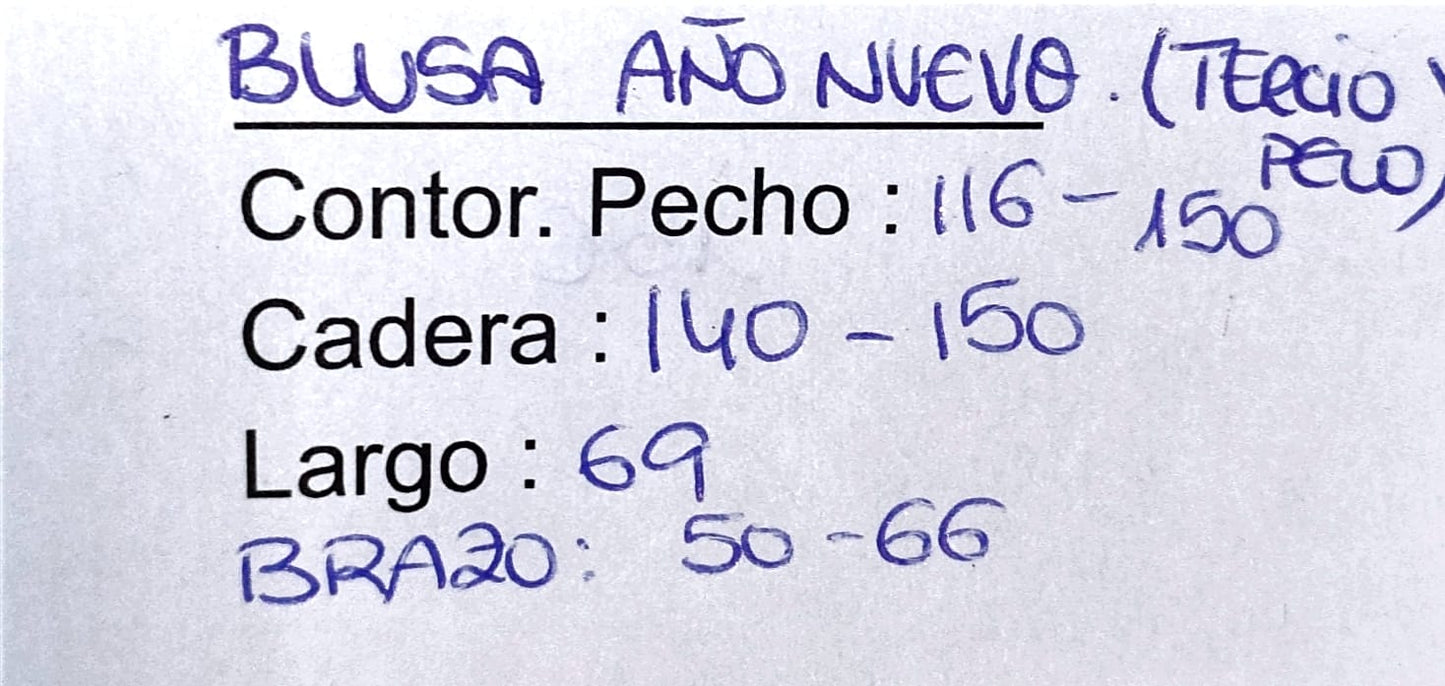 BLUSA AÑO NUEVO. (TERCIO
PELO)
Contor. Pecho : 116 - 150
Cadera : 140 - 150
Largo : 69
BRAZO: 50 - 66